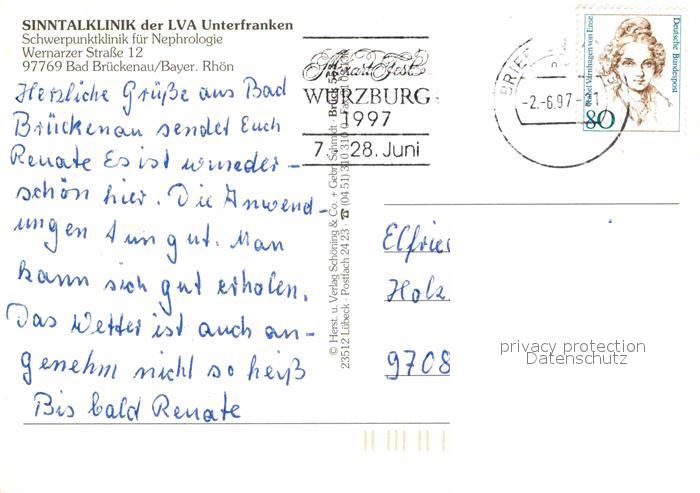 SINNTALKLINIK der LVA Unterfranken
Schwerpunktklinik für Nephrologie
Wernarzer Straße 12
97769 Bad Brückenau/Bayer. Rhön
Herzliche Grüße aus Bad
Brückenau sendet Euch
Renate Es ist wunder-
schön hier. Die Anwend-
ungen tun gut. Man
kann sich gut erholen.
Das Wetter ist auch an-
genehm nicht so heiß
Bis bald Renate
Mozart Fest
WÜRZBURG
1997
28. Juni
© Herst. u. Verlag Schöning & Co. + Gebr. Schmidt
23512 Lübeck · Postfach 24 23 · ☎ (04 51) 310 310
BRIE
-2.-6.97
Rahel Varnhagen von Ense
Deutsche Bundespost
80
Elfrie
Holz
9708
privacy protection
Datenschutz